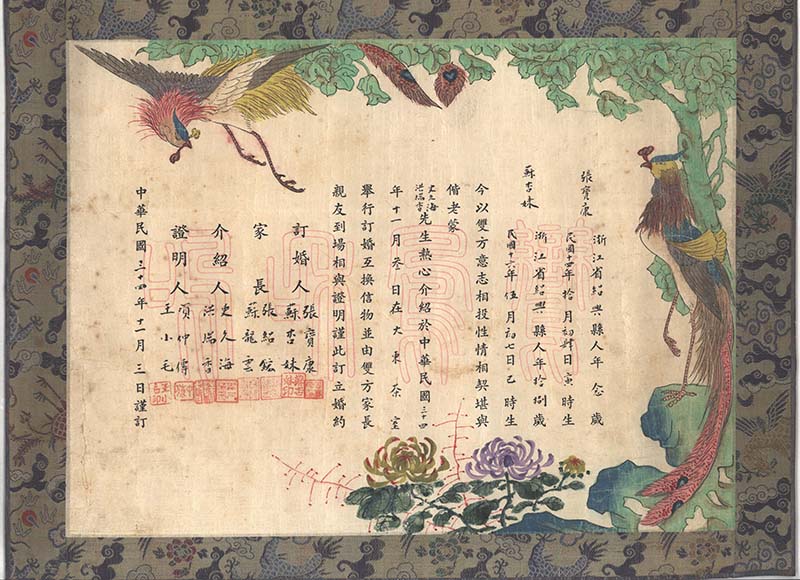 張寶康
浙江省紹興縣人年念歲
民國十四年拾月初肆日寅時生
蘇杏妹
浙江省紹興縣人年拾捌歲
民國十六年伍月初七日巳時生
今以雙方意志相投性情相契堪與
偕老蒙
史久海
洪瑞香
先生熱心介紹於中華民國三十四
年十一月叁日在大東茶室
舉行訂婚互換信物並由雙方家長
親友到場相與證明謹此訂立婚約
訂婚人
張寶康
蘇杏妹
家長
張紹鋐
蘇龍雲
介紹人
史久海
洪瑞香
證明人
項仲傳
王小毛
中華民國三十四年十一月三日謹訂